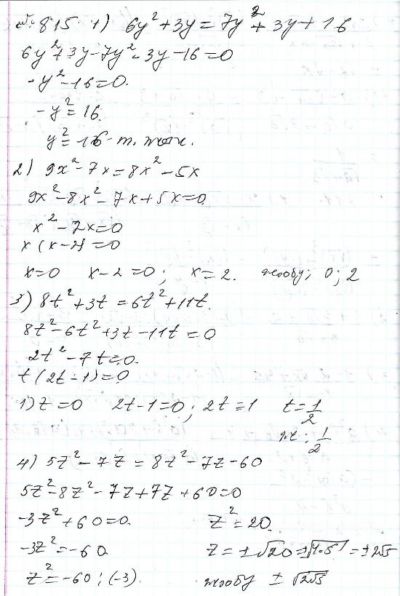 № 815 1) 6y² + 3y = 7y² + 3y + 16
6y² + 3y - 7y² - 3y - 16 = 0
-y² - 16 = 0.
-y² = 16.
y² = -16 -
2) 9x² - 7x = 8x² - 5x
9x² - 8x² - 7x + 5x = 0
x² - 2x = 0
x(x-2) = 0
x = 0 x - 2 = 0; x = 2. жообу; 0; 2
3) 8t² + 3t = 6t² + 11t.
8t² - 6t² + 3t - 11t = 0
2t² - 7t = 0.
t(2t-1) = 0
1) t = 0 2t - 1 = 0; 2t = 1 t = 1/2
; 1/2
4) 5z² - 7z = 8z² - 7z - 60
5z² - 8z² - 7z + 7z + 60 = 0
-3z² + 60 = 0. z² = 20.
-3z² = -60. z = ±√20 = ±√4·5 = ±2√5
z² = -60 : (-3). жообу ±√2√5